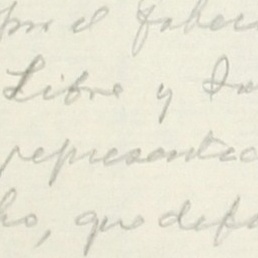 por el Gober
Libre y
representac
ho, que defi